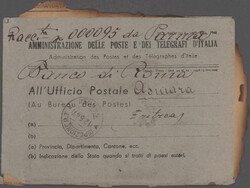 Racc.ta 000095 da Parma
AMMINISTRAZIONE DELLE POSTE E DEI TELEGRAFI D'ITALIA
Administration des Postes et des Télégraphes d'Italie
Banco di Roma
All'Ufficio Postale Asmara
(Au Bureau des Postes)
Eritrea
(a)
(b)
(a) Provincia, Dipartimento, Cantone, ecc.
(b) Indicazione dello Stato quando si tratti di paesi esteri.